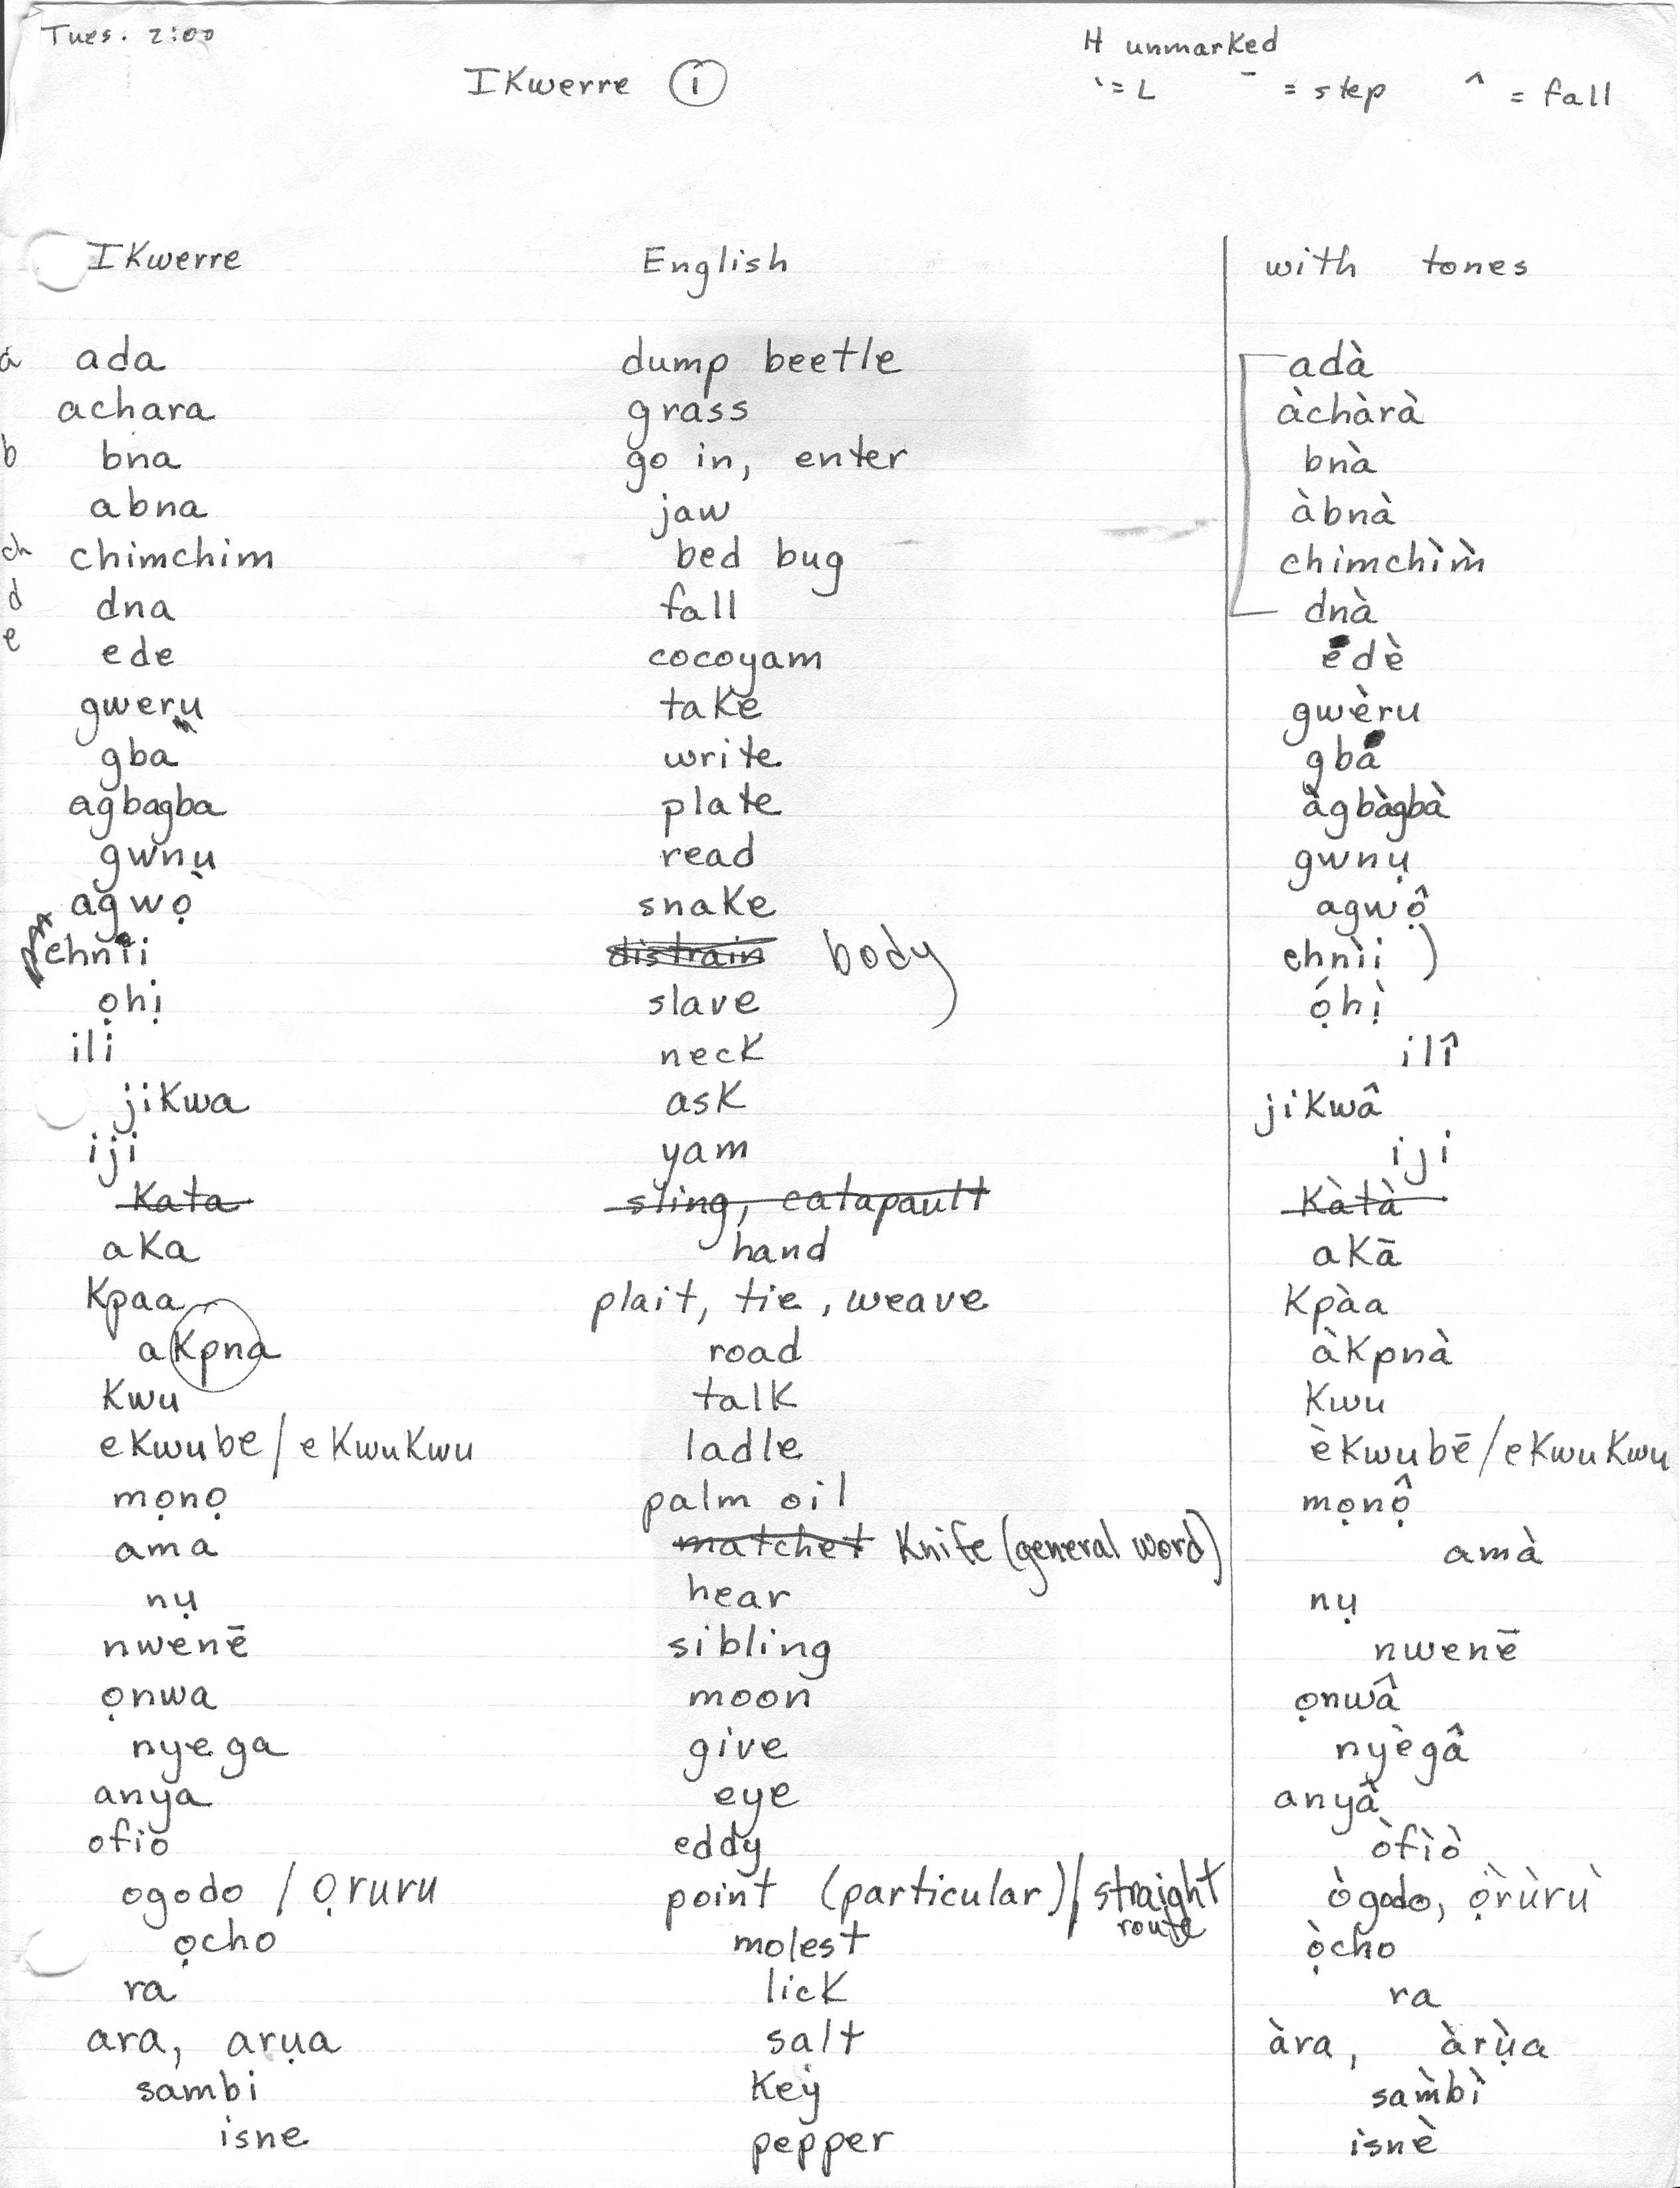 Tues. 2:00
H unmarked
Ikwerre ① ̀ = L ̄ = step ^ = fall
Ikwerre English with tones
a ada dump beetle adà
achara grass àchàrà
b bna go in, enter bnà
abna jaw àbnà
ch chimchim bed bug chimchìm̀
d dna fall dnà
e ede cocoyam edè
gweru take gwèru
gba write gba
agbagba plate àgbàgbà
gwnụ read gwnụ
agwọ̀ snake agwộ
ehnii distrain body ehnìi )
ọhị slave ọ́hị̀
ilị neck ilị̂
jikwa ask jikwâ
iji yam iji
kata sling, catapault kàtà
aka hand akā
kpaa plait, tie, weave kpàa
akpna road àkpnà
kwu talk kwu
ekwube / ekwukwu ladle èkwubē / ekwukwu
mọnọ palm oil mọnộ
ama matchet Knife (general word) amà
nụ hear nụ
nwenē sibling nwenē
ọnwa moon ọnwâ
nyega give nyègâ
anya eye anyâ
ofio eddy òfìò
ogodo / ọruru point (particular) / straight route ògodo, ọ̀rùrù
ọcho molest ọ̀cho
ra lick ra
ara, arụa salt àra, àrụ̀a
sambi key sam̀bì
isne pepper isnè